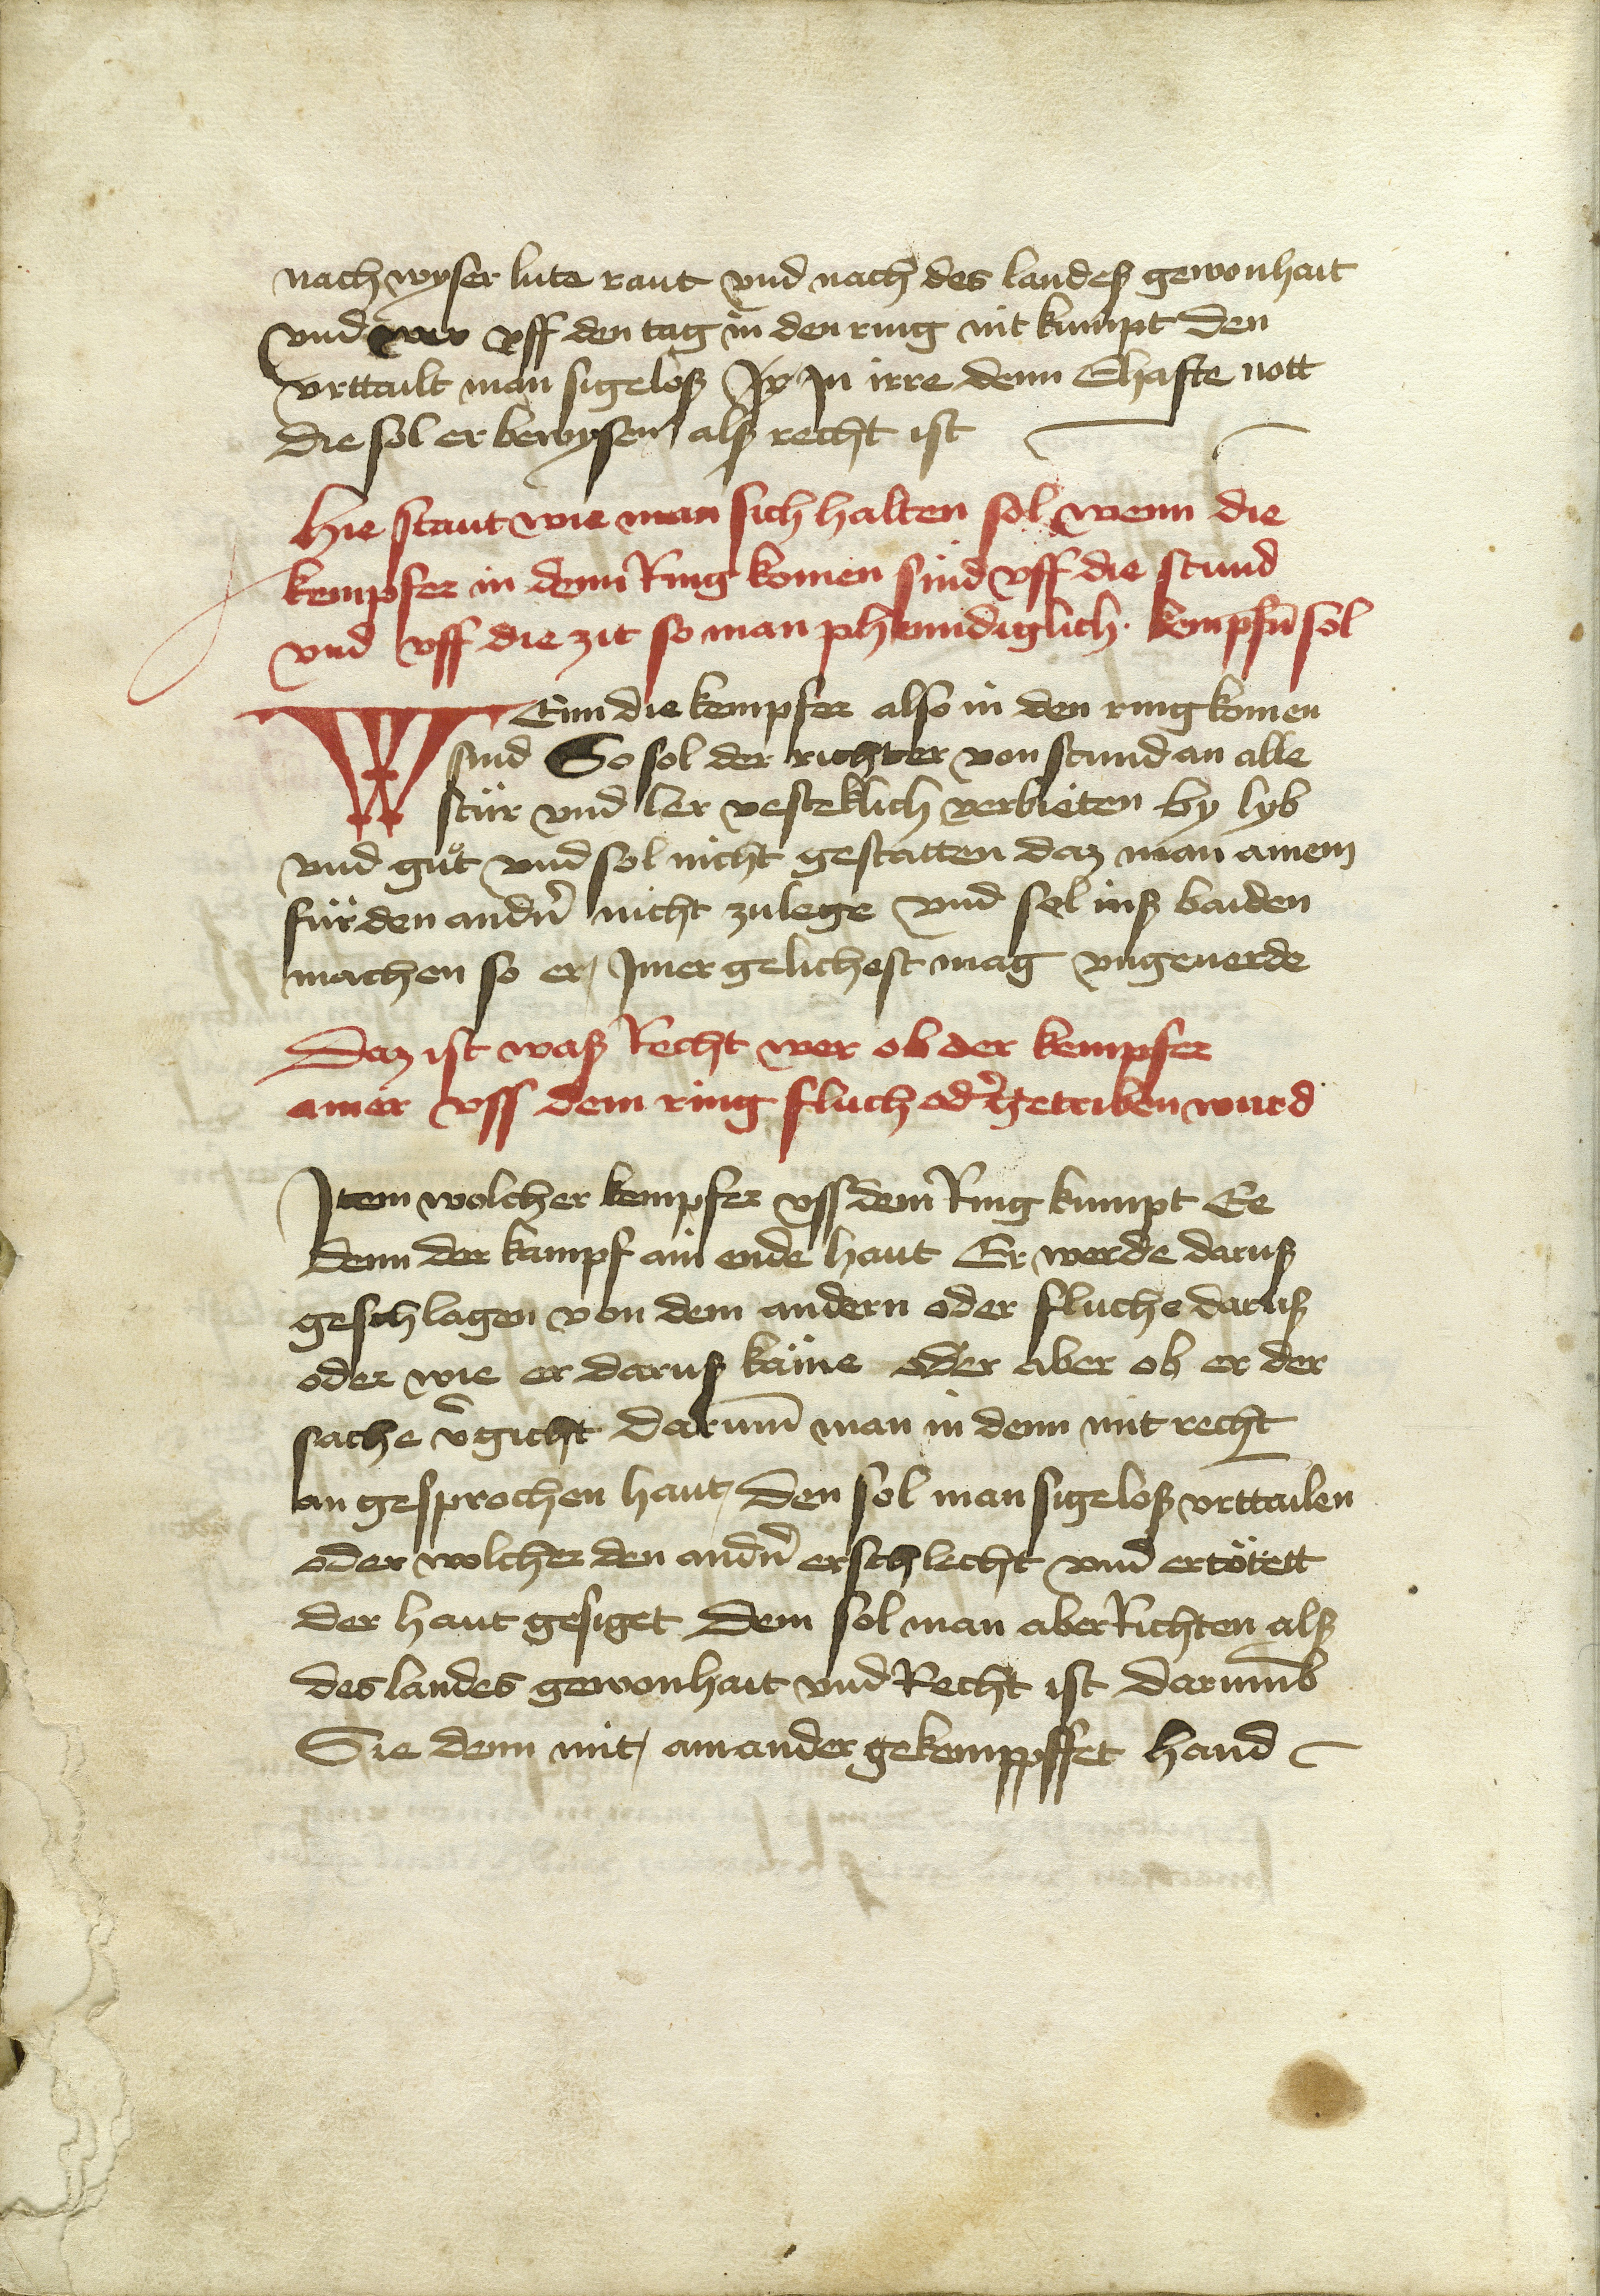 nach wyser lute raut vnd nach des landeß gewonhait
vnd wer vff den tag in den ring nit kumpt den
vrttailt man sigeloß Jr Jn irre denn Ehafte nott
die sol er bewysen alß recht ist
Hie staut wie man sich halten sol wenn die
kempfer in denn Ring komen sind vff die stund
vnd vff die zit so man kempfñ sol
WEnn die kempfer also in den ring komen
sind So sol der richter von stund an alle
stür vnd ler vesteklich verbieten by lyb
vnd gůt vnd sol nicht gestatten daz man ainem
für den andn̄ nicht zulege vnd sol inß baiden
machen so er Jmer gelichest mag vngeuerde
Daz ist waß Recht wer ob der kempfer
ainer vss dem ring fluch od̄ getriben wurd
Item wolcher kempfer vss dem Ring kumpt Ee
denn der kampf ain ende haut Er werde daruß
geschlagen von dem andern oder fluche daruß
oder wie er daruß käme oder aber ob er der
sache v̄gicht darum̄ man in denn mit recht
an gesprochen haut den sol man sigeloß vrttailen
oder wolcher den andn̄ erschlecht vnd ertötett
der haut gesiget Dem sol man aber Richten alß
des landes gewonhait vnd Recht ist darumb
Sie denn mit ainander gekemppffet hand